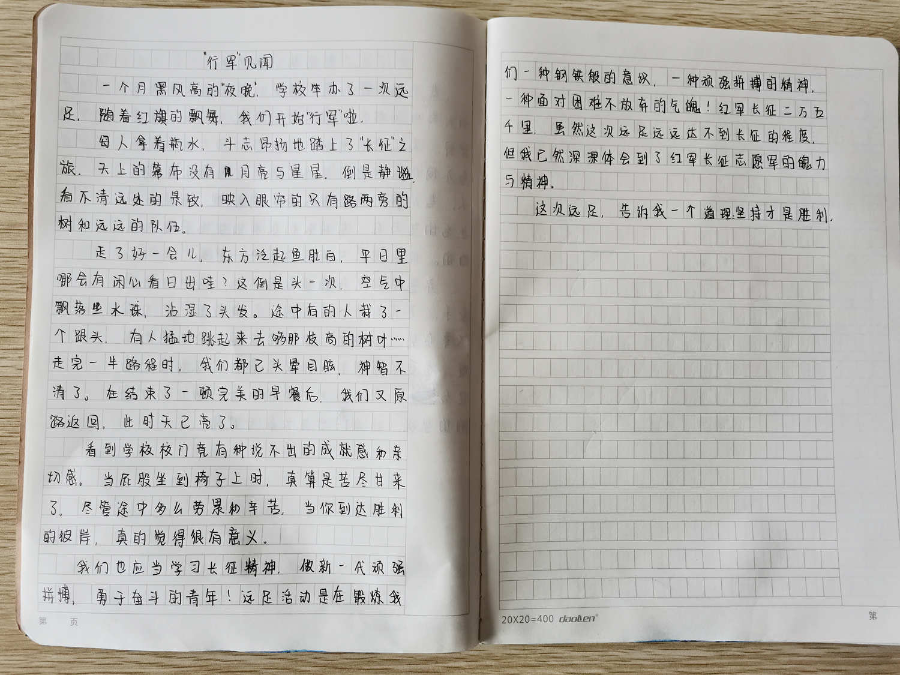 “行军”见闻
一个月黑风高的“夜晚”，学校举办了一次远
足，随着红旗的飘舞，我们开始“行军”啦。
每人拿着瓶水，斗志昂扬地踏上了“长征”之
旅，天上的幕布没有月亮与星星，倒是静谧，
看不清远处的景致，映入眼帘的只有路两旁的
树和远远的队伍。
走了好一会儿，东方泛起鱼肚白，平日里
哪会有闲心看日出哇？这倒是头一次，空气中
飘落些水珠，沾湿了头发。途中有的人栽了一
个跟头，有人猛地跳起来去够那枝高的树叶……
走完一半路程时，我们都已头晕目眩，神智不
清了。在结束了一顿完美的早餐后，我们又原
路返回，此时天已亮了。
看到学校校门竟有种说不出的成就感和亲
切感。当屁股坐到椅子上时，真算是苦尽甘来
了，尽管途中多么劳累和辛苦，当你到达胜利
的彼岸，真的觉得很有意义。
我们也应当学习长征精神，做新一代顽强
拼搏，勇于奋斗的青年！远足活动是在锻炼我
们一种钢铁般的意识，一种顽强拼搏的精神，
一种面对困难不放弃的气魄！红军长征二万五
千里，虽然这次远足远远达不到长征的程度，
但我已然深深体会到了红军长征志愿军的魄力
与精神。
这次远足，告诉我一个道理坚持才是胜利.
第 页
20X20=400 daolen
第